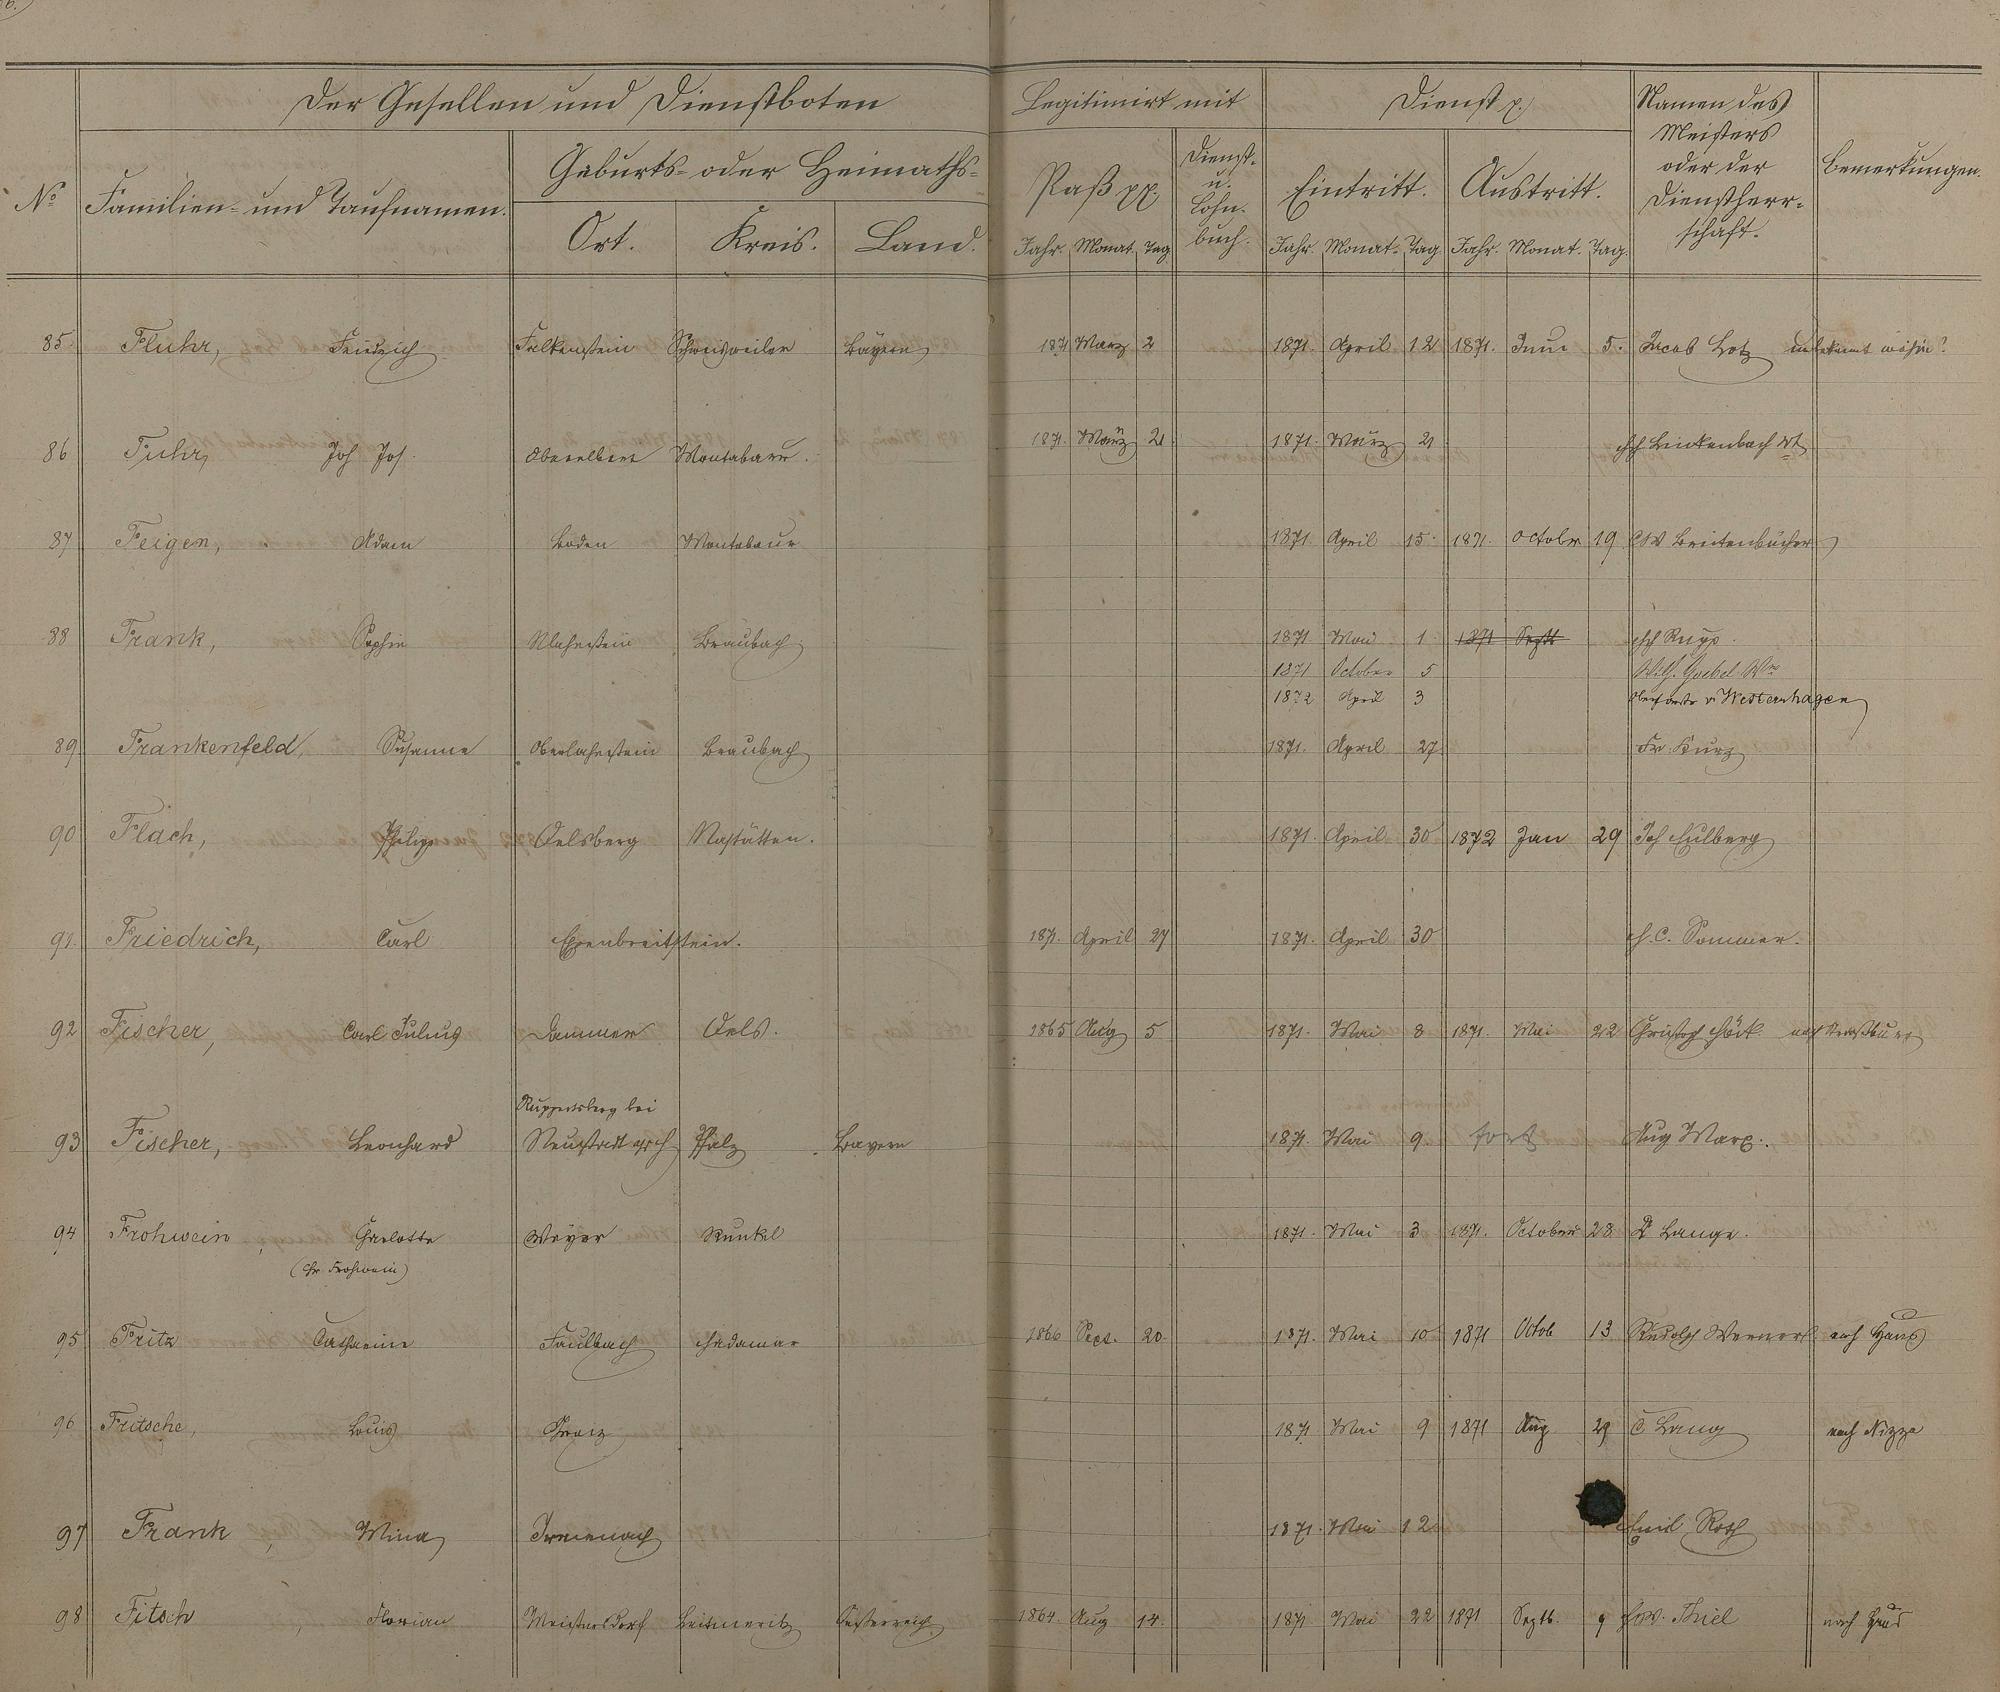 Der Gesellen und Dienstboten Legitimirt mit Dienst p. Namen des Meisters oder der Dienstherrschaft. Bemerkungen.
No Familien- und Taufnamen. Geburts- oder Heimaths- Paß pp. Dienst- u. Lohn-buch. Eintritt. Austritt.
Ort. Kreis. Land. Jahr. Monat. Tag Jahr. Monat. Tag Jahr. Monat. Tag.
85. Fluhr, Friedrich Falkenstein Schweisweiler Bayern 1871 Maerz 2 1871. April 12 1871. Juni 5. Jacob Lotz unbekannt wohin?
86 Fuhr, Joh Jos. Oberelbert Montabaur. 1871. März 21 1871. März 21 Linkenbach
87 Feigen, Adam Boden Montabaur 1871 April 15 1871. October 19 CW Breitenbücher
88 Frank, Sophie Braubach 1871 Mai 1 1871 Septb Rupp.
1871 October 5 Wilh. Goebel Wwe
1872 April 3 v. Westernhagen
89 Frankenfeld, Susanne Oberlahnstein Braubach 1871. April 27 Fr. Kurz
90 Flach, Philipp Oelsberg Nastätten. 1871. April 30 1872 Jan 29 Joh Eulberg
91. Friedrich, Carl Ehrenbreitstein. 1871. April 27 1871. April 30 H. C. Sommer.
92 Fischer, Carl Julius Dammer Oels. 1865 Aug 5 1871. Mai 8 1871. Mai 22 Christoph nach Straßburg
Ruppertsberg bei
93 Fischer, Leonhard Neustadt Pfalz Bayern 1871. Mai 9. fort Aug Marx.
94 Frohwein, Charlotte Weyer Runkel 1871. Mai 3 1871. October 28 Dr Lange.
(Chr Frohwein)
95 Fritz Catharine Faulbach Hadamar 1866 Sept. 20. 1871. Mai 10 1871 Octob 13 Rudolph Werner nach Haus
96 Fritsche, Louis Greiz 1871. Mai 9 1871 Aug 29 C Lang nach Nizza
97 Frank, Mina Irmenach 1871. Mai 12 Emil Roth
98 Fitsch, Florian Meistersdorf Leitmeritz Oesterreich 1864. Aug 14. 1871 Mai 22 1871 Septb. 9 Thiel nach Haus